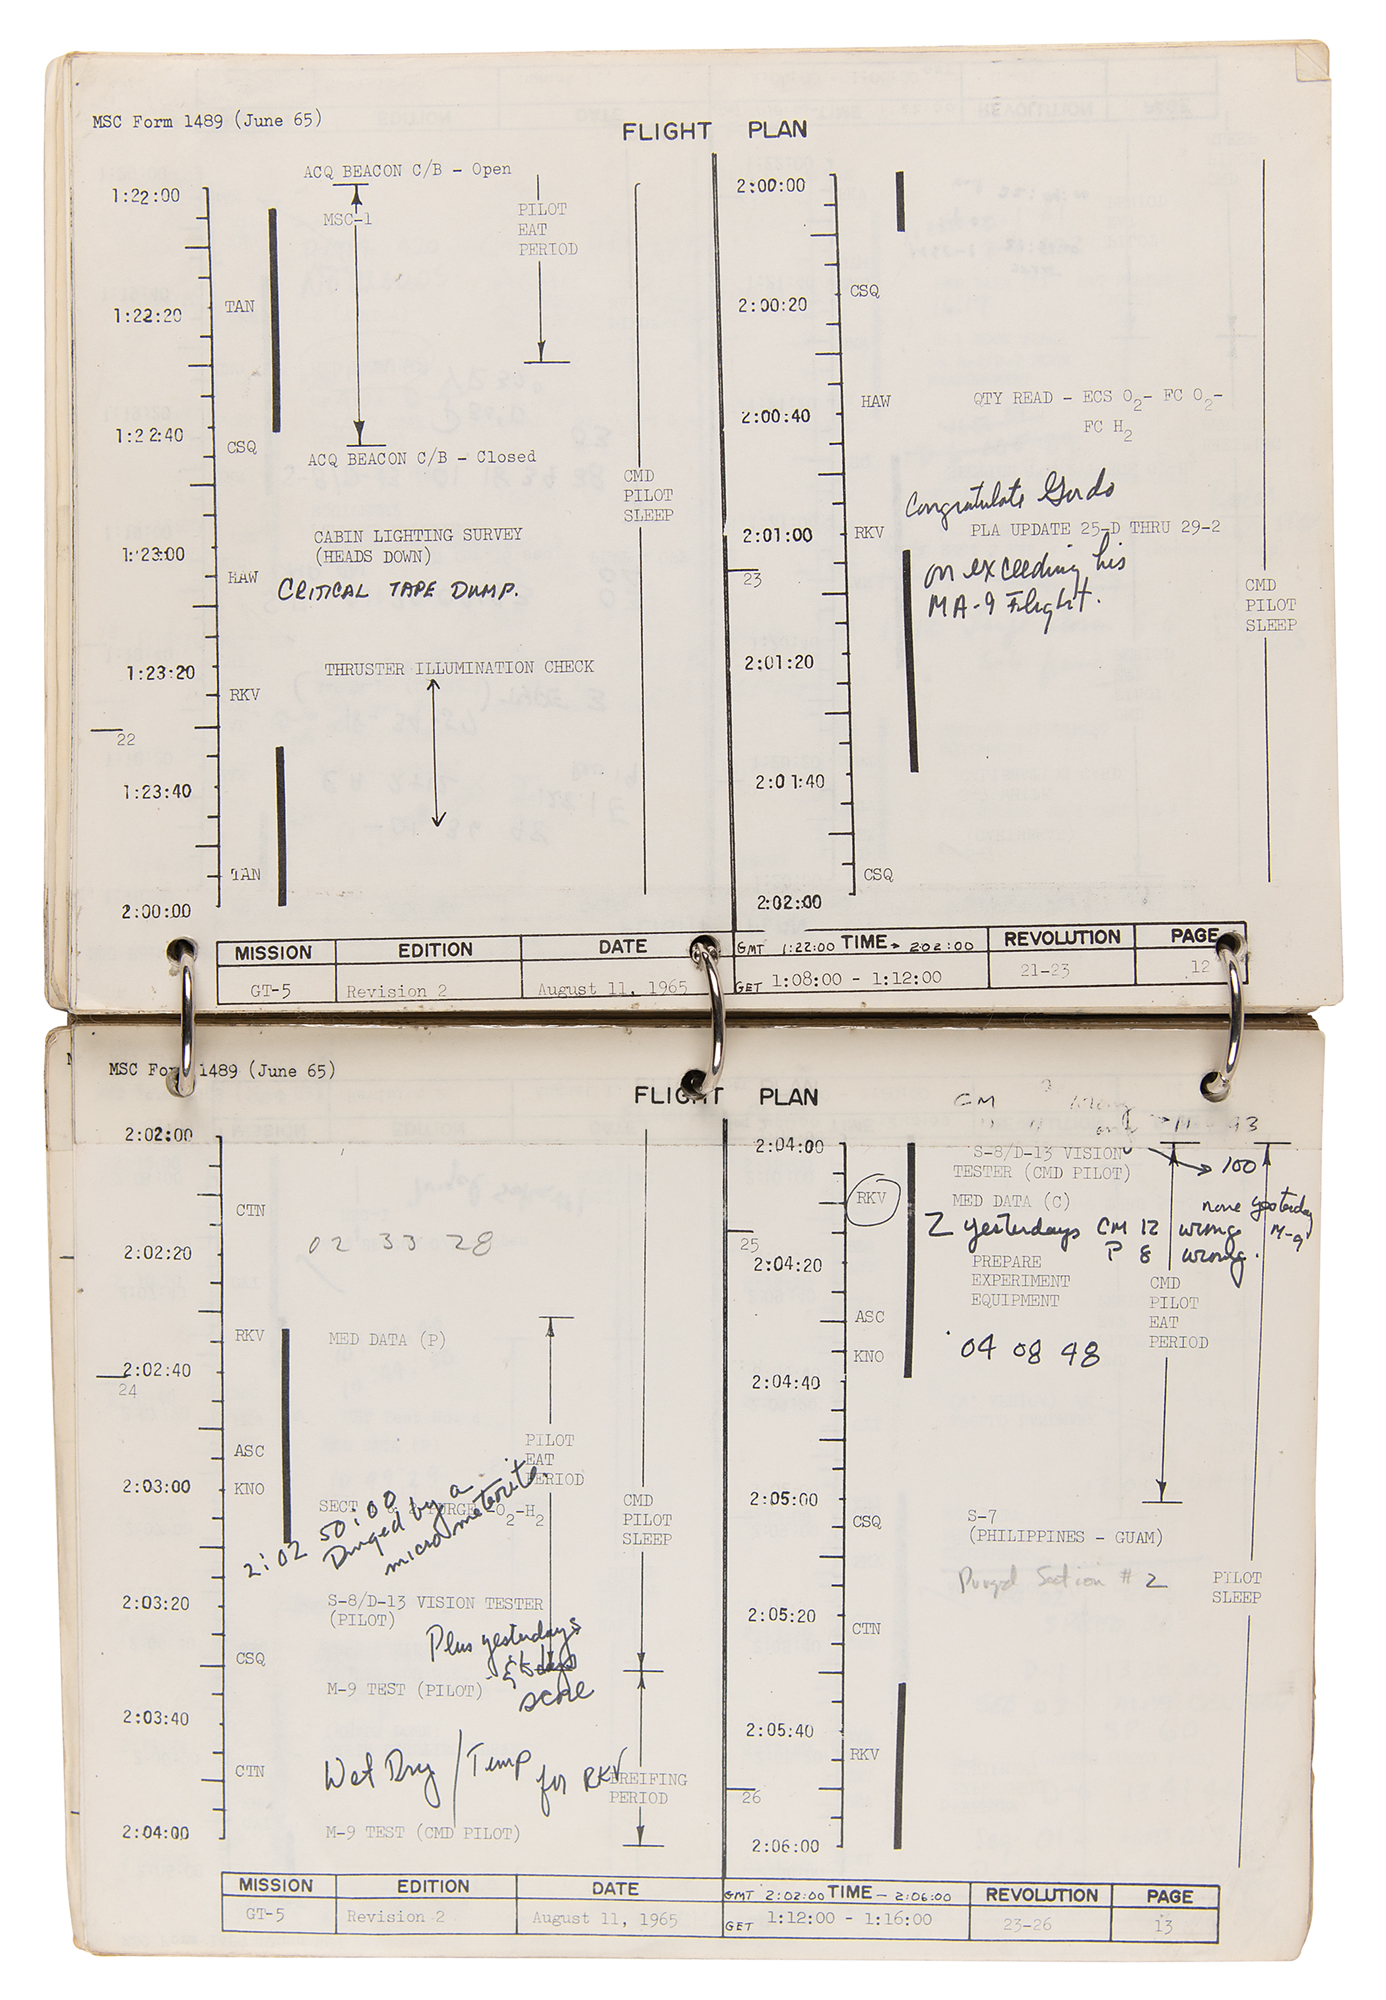 MSC Form 1489 (June 65)
FLIGHT PLAN
ACQ BEACON C/B - Open
1:22:00
MSC-1
PILOT
EAT
PERIOD
TAN
1:22:20
1:22:40
CSQ
ACQ BEACON C/B - Closed
CMD
PILOT
SLEEP
CABIN LIGHTING SURVEY
(HEADS DOWN)
1:23:00
HAW
CRITICAL TAPE DUMP.
THRUSTER ILLUMINATION CHECK
1:23:20
RKV
22
1:23:40
TAN
2:00:00
2:00:00
CSQ
2:00:20
HAW
QTY READ - ECS O2- FC O2-
FC H2
2:00:40
Congratulate Gordo
RKV
PLA UPDATE 25-D THRU 29-2
2:01:00
on exceeding his
MA-9 Flight.
23
CMD
PILOT
SLEEP
2:01:20
2:01:40
CSQ
2:02:00
MISSION EDITION DATE GMT 1:22:00 TIME → 2:02:00 REVOLUTION PAGE
GT-5 Revision 2 August 11, 1965 GET 1:08:00 - 1:12:00 21-23 12
MSC Form 1489 (June 65)
FLIGHT PLAN
2:02:00
CTN
02 33 28
2:02:20
RKV
MED DATA (P)
2:02:40
24
PILOT
EAT
PERIOD
ASC
KNO
2:03:00
SECT & 2 PURGE -O2-H2
2:02 50:00
Dinged by a
micro meteorite
CMD
PILOT
SLEEP
S-8/D-13 VISION TESTER
(PILOT)
2:03:20
Plus yesterdays
score
CSQ
M-9 TEST (PILOT)
2:03:40
CTN
Wet Dry / Temp for RKV
BREIFING
PERIOD
M-9 TEST (CMD PILOT)
2:04:00
CM
2:04:00
S-8/D-13 VISION
TESTER (CMD PILOT)
100
RKV
MED DATA (C)
none yesterday
M-9
2 yesterdays CM 12 wrong
P 8 wrong.
25
2:04:20
PREPARE
EXPERIMENT
EQUIPMENT
CMD
PILOT
EAT
PERIOD
ASC
KNO
04 08 48
2:04:40
2:05:00
CSQ
S-7
(PHILIPPINES - GUAM)
Purged Section # 2
PILOT
SLEEP
2:05:20
CTN
2:05:40
RKV
26
2:06:00
MISSION EDITION DATE GMT 2:02:00 TIME - 2:06:00 REVOLUTION PAGE
GT-5 Revision 2 August 11, 1965 GET 1:12:00 - 1:16:00 23-26 13